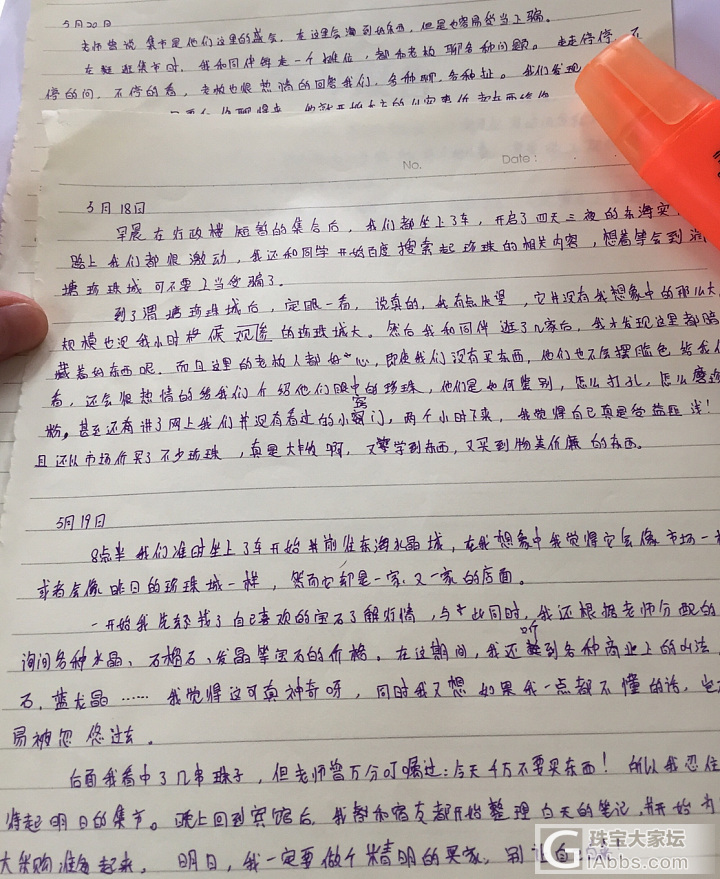 5月20日
老师曾说集市是他们这里的盛会，在这里会淘到好东西，但是也容易受当上骗。
在逛集市时，我和同伴每走一个摊位，都和老板聊各种问题。走走停停，不
停的问，不停的看，老板也很热情的回答我们，各种聊，各种扯。我们发现
No. Date:
5月18日
早晨在行政楼短暂的集合后，我们都坐上了车，开启了四天三夜的东海实
路上我们都很激动，我还和同学开始百度搜索起珍珠的相关内容，想着等会到渭
塘珍珠城可不要上当受骗了。
到了渭塘珍珠城后，定眼一看，说真的，我有点失望，它并没有我想象中的那么大
规模也没我小时候观念的珍珠城大。然后我和同伴逛了几家后，我才发现这里都暗
藏着好东西呢。而且这里的老板人都好心，即使我们没有买东西，他们也不会摆脸色给我们
看，还会很热情的给我们介绍他们眼中的珍珠，他们是如何鉴别，怎么打孔，怎么磨
粉。甚至还有讲了网上我们并没有看过的小窍门，两个小时下来，我觉得自己真是受益匪浅！
且还以市场价买了不少珍珠，真是大丰收啊，又学到东西，又买到物美价廉的东西。
5月19日
8点半我们准时坐上了车开始前往东海水晶城，在我想象中我觉得它会像市场一
或者会像昨日的珍珠城一样，然而它却是一家又一家的店面。
一开始我先找了自己喜欢的宝石了解行情，与此同时，我还根据老师分配的
询问各种水晶、石榴石、发晶等宝石的价格。在这期间，我还听到各种商业上的叫法
石，蓝龙晶……我觉得这可真神奇呀，同时我又想如果我一点都不懂的话，也
易被忽悠过去。
后面我看中了几串珠子，但老师曾万分叮嘱过：今天千万不要买东西！所以我忍住
待起明日的集市。晚上回到宾馆后，我都和宿友都开始整理白天的笔记，并开始为
大采购准备起来。明日，我一定要做个精明的买家，别让自己
珠宝大家坛
iAbbs.com